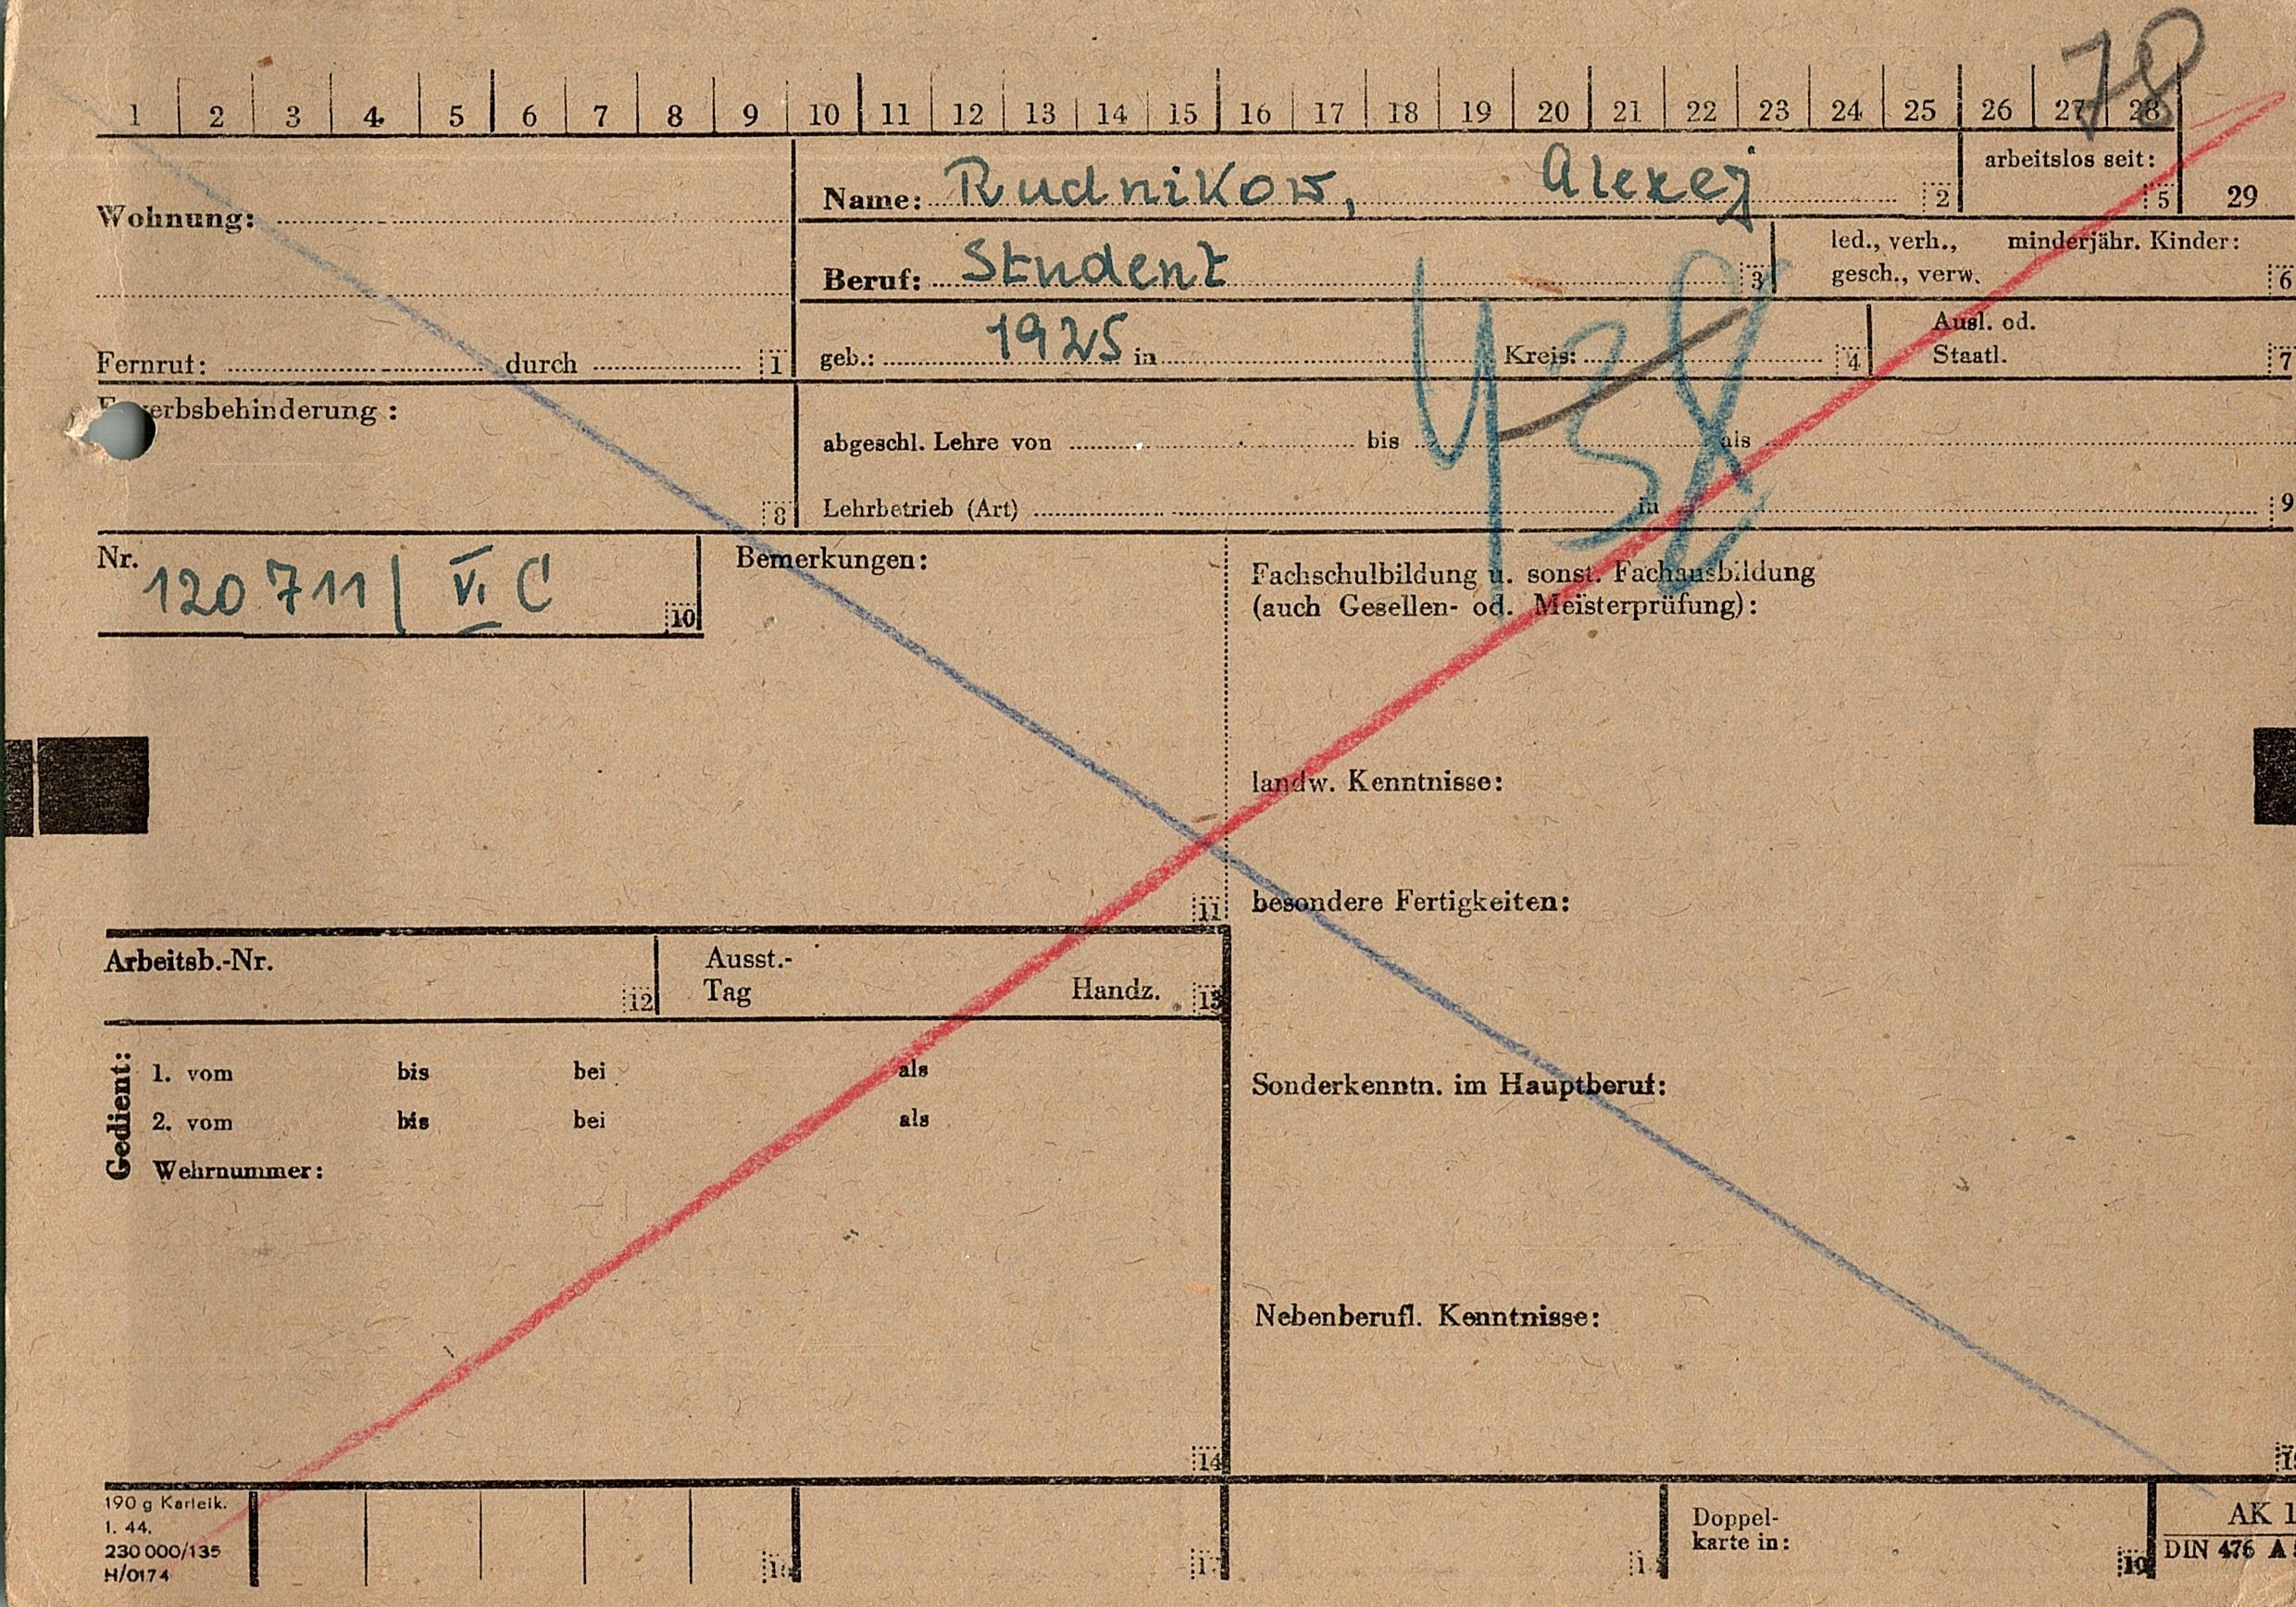 78
1 2 3 4 5 6 7 8 9 10 11 12 13 14 15 16 17 18 19 20 21 22 23 24 25 26 27 28
Wohnung:
Name: Rudnikow, Alexej 2
arbeitslos seit: 5
29
Beruf: Student 3
led., verh., minderjähr. Kinder:
gesch., verw. 6
Fernruf: durch 1
geb.: 1925 in Kreis: 4
Ausl. od.
Staatl. 7
438
Erwerbsbehinderung:
8
abgeschl. Lehre von bis als
Lehrbetrieb (Art) in 9
Nr. 120711/ VI C 10
Bemerkungen:
11
Fachschulbildung u. sonst. Fachausbildung
(auch Gesellen- od. Meisterprüfung):
landw. Kenntnisse:
besondere Fertigkeiten:
Arbeitsb.-Nr. 12
Ausst.-
Tag Handz. 13
Gedient:
1. vom bis bei als
2. vom bis bei als
Wehrnummer:
14
Sonderkenntn. im Hauptberuf:
Nebenberufl. Kenntnisse:
190 g Karteik.
1. 44.
230 000/135
H/0174
16
17
Doppel-
karte in: 19
AK 1
DIN 476 A